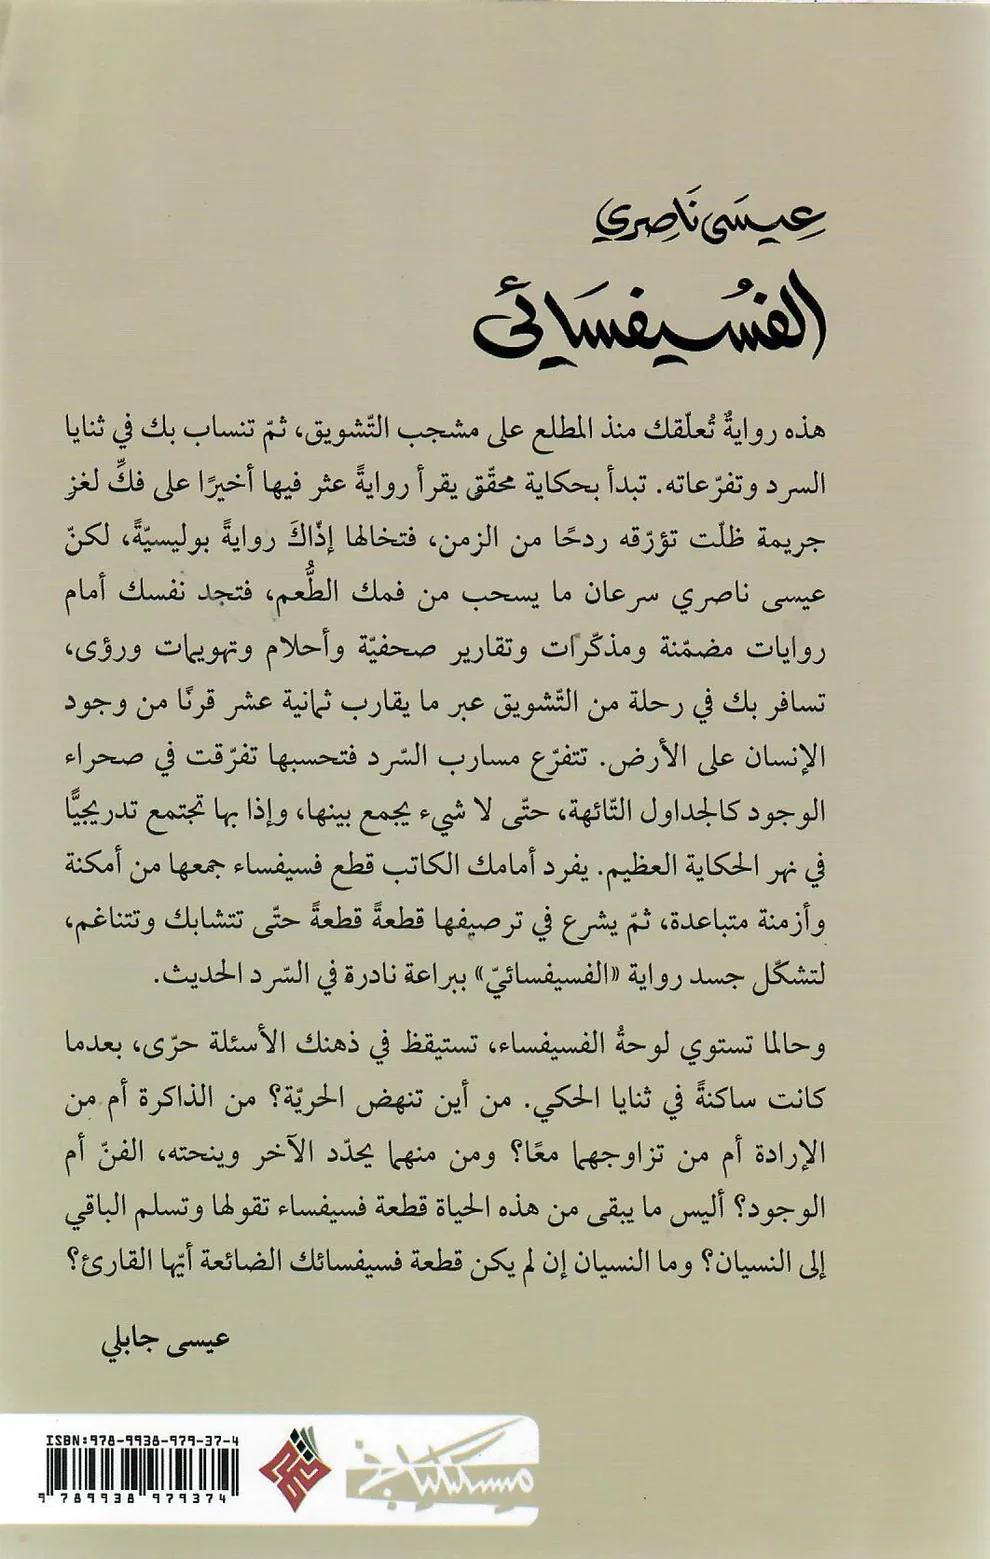 عِيسَى نَاصِري
الفُسيفسَائي
هذه روايةٌ تُعلّقك منذ المطلع على مشجب التّشويق، ثمّ تنساب بك في ثنايا
السرد وتفرّعاته. تبدأ بحكاية محقّق يقرأ روايةً عثر فيها أخيرًا على فكِّ لغز
جريمة ظلّت تؤرّقه ردحًا من الزمن، فتخالها إذّاكَ روايةً بوليسيّةً، لكنّ
عيسى ناصري سرعان ما يسحب من فمك الطُّعم، فتجد نفسك أمام
روايات مضمّنة ومذكّرات وتقارير صحفيّة وأحلام وتهويمات ورؤى،
تسافر بك في رحلة من التّشويق عبر ما يقارب ثمانية عشر قرنًا من وجود
الإنسان على الأرض. تتفرّع مسارب السّرد فتحسبها تفرّقت في صحراء
الوجود كالجداول التّائهة، حتّى لا شيء يجمع بينها، وإذا بها تجتمع تدريجيًّا
في نهر الحكاية العظيم. يفرد أمامك الكاتب قطع فسيفساء جمعها من أمكنة
وأزمنة متباعدة، ثمّ يشرع في ترصيفها قطعةً قطعةً حتّى تتشابك وتتناغم،
لتشكّل جسد رواية «الفسيفسائيّ» ببراعة نادرة في السّرد الحديث.
وحالما تستوي لوحةُ الفسيفساء، تستيقظ في ذهنك الأسئلة حرّى، بعدما
كانت ساكنةً في ثنايا الحكي. من أين تنهض الحريّة؟ من الذاكرة أم من
الإرادة أم من تزاوجهما معًا؟ ومن منهما يحدّد الآخر وينحته، الفنّ أم
الوجود؟ أليس ما يبقى من هذه الحياة قطعة فسيفساء تقولها وتسلم الباقي
إلى النسيان؟ وما النسيان إن لم يكن قطعة فسيفسائك الضائعة أيّها القارئ؟
عيسى جابلي
ISBN:978-9938-979-37-4
ميسكيلياني
9 789938 979374